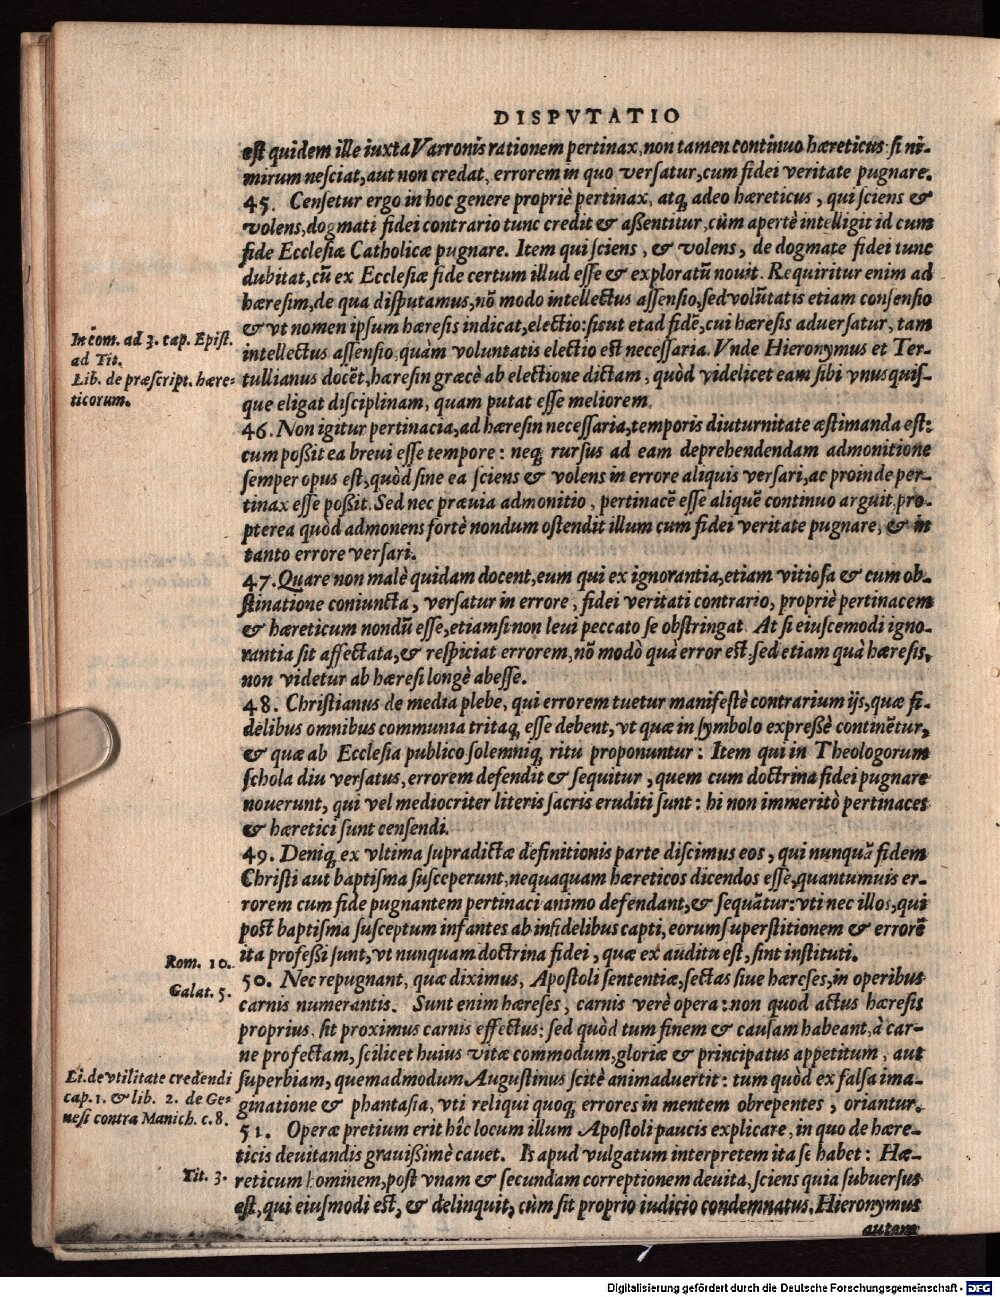 DISPVTATIO
est quidem ille iuxta Varronis rationem pertinax, non tamen continuo hæreticus: si ni-
mirum nesciat, aut non credat, errorem in quo versatur, cum fidei veritate pugnare.
45. Censetur ergo in hoc genere propriè pertinax, atq; adeo hæreticus, qui sciens &
volens, dogmati fidei contrario tunc credit & aßentitur, cùm apertè intelligit id cum
fide Ecclesiæ Catholicæ pugnare. Item qui sciens, & volens, de dogmate fidei tunc
dubitat, cū ex Ecclesiæ fide certum illud esse & exploratū nouit. Requiritur enim ad
hæresim, de qua disputamus, nō modo intellectus assensio, sed volūtatis etiam consensio
& vt nomen ipsum hæresis indicat, electio: sicut et ad fidē, cui hæresis aduersatur, tam
In cōm. ad 3. cap. Epist.
ad Tit.
intellectus assensio, quàm voluntatis electio est necessaria. Vnde Hieronymus et Ter-
Lib. de præscript. hære-
ticorum.
tullianus docēt, hæresin græcè ab electione dictam, quòd videlicet eam sibi vnusquis-
que eligat disciplinam, quam putat esse meliorem.
46. Non igitur pertinacia, ad hæresin necessaria, temporis diuturnitate æstimanda est:
cum poßit ea breui esse tempore: neq; rursus ad eam deprehendendam admonitione
semper opus est, quòd sine ea sciens & volens in errore aliquis versari, ac proinde per-
tinax esse poßit. Sed nec præuia admonitio, pertinacē esse aliquē continuo arguit, pro-
pterea quòd admonens fortè nondum ostendit illum cum fidei veritate pugnare, & in
tanto errore versari.
47. Quare non malè quidam docent, eum qui ex ignorantia, etiam vitiosa & cum ob-
stinatione coniuncta, versatur in errore, fidei veritati contrario, propriè pertinacem
& hæreticum nondū esse, etiamsi non leui peccato se obstringat. At si eiuscemodi igno-
rantia sit affectata, & respiciat errorem, nō modò quà error est, sed etiam quà hæresis,
non videtur ab hæresi longè abesse.
48. Christianus de media plebe, qui errorem tuetur manifestè contrarium ijs, quæ fi-
delibus omnibus communia tritaq; esse debent, vt quæ in symbolo expreßè continētur,
& quæ ab Ecclesia publico solemniq; ritu proponuntur: Item qui in Theologorum
schola diu versatus, errorem defendit & sequitur, quem cum doctrina fidei pugnare
nouerunt, qui vel mediocriter literis sacris eruditi sunt: hi non immeritò pertinaces
& hæretici sunt censendi.
49. Deniq; ex vltima supradictæ definitionis parte discimus eos, qui nunquā fidem
Christi aut baptisma susceperunt, nequaquam hæreticos dicendos esse, quantumuis er-
rorem cum fide pugnantem pertinaci animo defendant, & sequātur: vti nec illos, qui
post baptisma susceptum infantes ab infidelibus capti, eorum superstitionem & errorē
ita professi sunt, vt nunquam doctrina fidei, quæ ex auditu est, sint instituti.
Rom. 10.
50. Nec repugnant, quæ diximus, Apostoli sententiæ, sectas siue hæreses, in operibus
Galat. 5.
carnis numerantis. Sunt enim hæreses, carnis verè opera: non quod actus hæresis
proprius, sit proximus carnis effectus: sed quòd tum finem & causam habeant, à car-
ne profectam, scilicet huius vitæ commodum, gloriæ & principatus appetitum, aut
Li. de vtilitate credendi
cap. 1. & lib. 2. de Ge-
nesi contra Manich. c. 8.
superbiam, quemadmodum Augustinus scitè animaduertit: tum quòd ex falsa ima-
ginatione & phantasia, vti reliqui quoq; errores in mentem obrepentes, oriantur.
51. Operæ pretium erit hîc locum illum Apostoli paucis explicare, in quo de hære-
ticis deuitandis grauißimè cauet. Is apud vulgatum interpretem ita se habet: Hæ-
Tit. 3.
reticum hominem, post vnam & secundam correptionem deuita, sciens quia subuersus
est, qui eiusmodi est, & delinquit, cùm sit proprio iudicio condemnatus. Hieronymus
autem
Digitalisierung gefördert durch die Deutsche Forschungsgemeinschaft - DFG